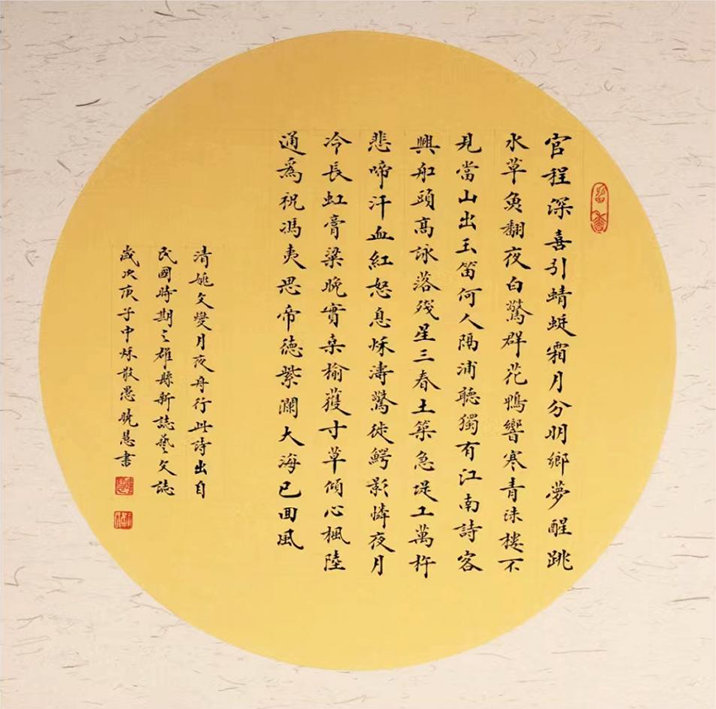 官程深喜引蜻蜓霜月分明鄉夢醒跳
水草魚翻夜白驚群花鴨響寒青沬樓不
見當山出玉笛何人隔浦聽獨有江南詩客
興舡頭高詠落殘星三春土築急堤工萬杵
悲啼汗血紅怒息秋濤驚徙鰐影憐夜月
冷長虹膏粱晚實桑榆獲寸草傾心楓陸
通爲祝馮夷思帝德紫瀾大海已回風
清姚文燮月夜舟行此詩出自
民國時期之雄縣新誌藝文誌
歲次庚子中秋散愚曉慧書